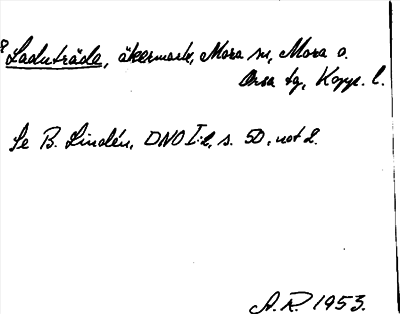 Laduträda, åkermark, Mora sn, Mora o.
Orsa tg, Kopp. l.
Se B. Lindén, DNO I:2, s. 50, not 2.
A.R. 1953.